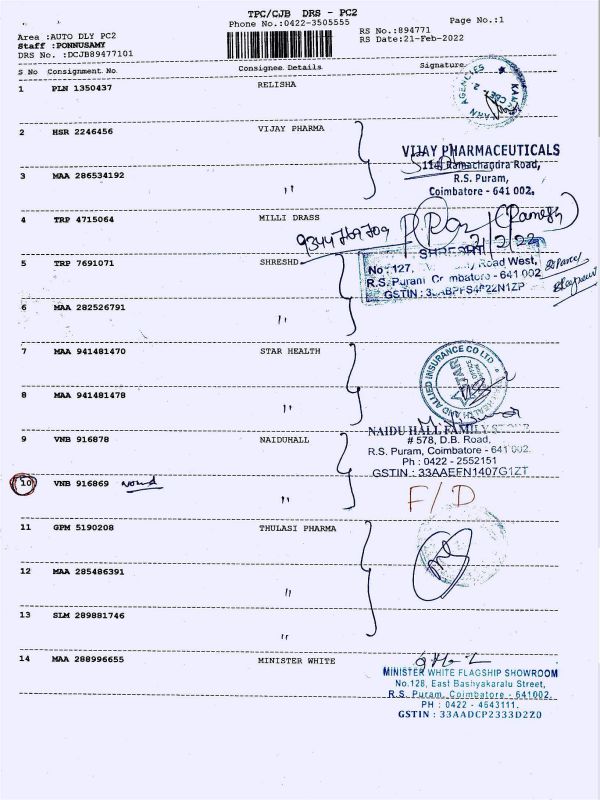 TPC/CJB DRS - PC2
Phone No.:0422-3505555
Page No.:1
Area :AUTO DLY PC2
RS No.:894771
Staff :PONNUSAMY
RS Date:21-Feb-2022
DRS No. :DCJB89477101
S No Consignment No Consignee Details Signature
1 PLN 1350437 RELISHA
AGENCIES
2 HSR 2246456 VIJAY PHARMA
VIJAY PHARMACEUTICALS
114, Ramachandra Road,
R.S. Puram,
Coimbatore - 641 002.
3 MAA 286534192 "
4 TRP 4715064 MILLI DRASS
9344769709
(Ramesh)
5 TRP 7691071 SHRESHD
No: 127, Road West,
R.S. Puram Coimbatore - 641 002
GSTIN :
6 MAA 282526791 "
7 MAA 941481470 STAR HEALTH
STAR HEALTH AND ALLIED INSURANCE CO LTD
8 MAA 941481478 "
9 VNB 916878 NAIDUHALL
NAIDU HALL FAMILY STORE
# 578, D.B. Road,
R.S. Puram, Coimbatore - 641 002.
Ph : 0422 - 2552151
GSTIN : 33AAEFN1407G1ZT
10 VNB 916869 "
F/D
11 GPM 5190208 THULASI PHARMA
12 MAA 285486391 "
13 SLM 289881746 "
14 MAA 288996655 MINISTER WHITE
MINISTER WHITE FLAGSHIP SHOWROOM
No.128, East Bashyakaralu Street,
R.S. Puram, Coimbatore - 641002.
PH : 0422 - 4643111.
GSTIN : 33AADCP2333D2Z0